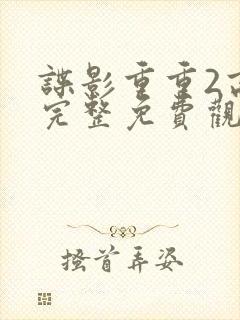 諜影重重2高
完整免費觀
搔首弄姿